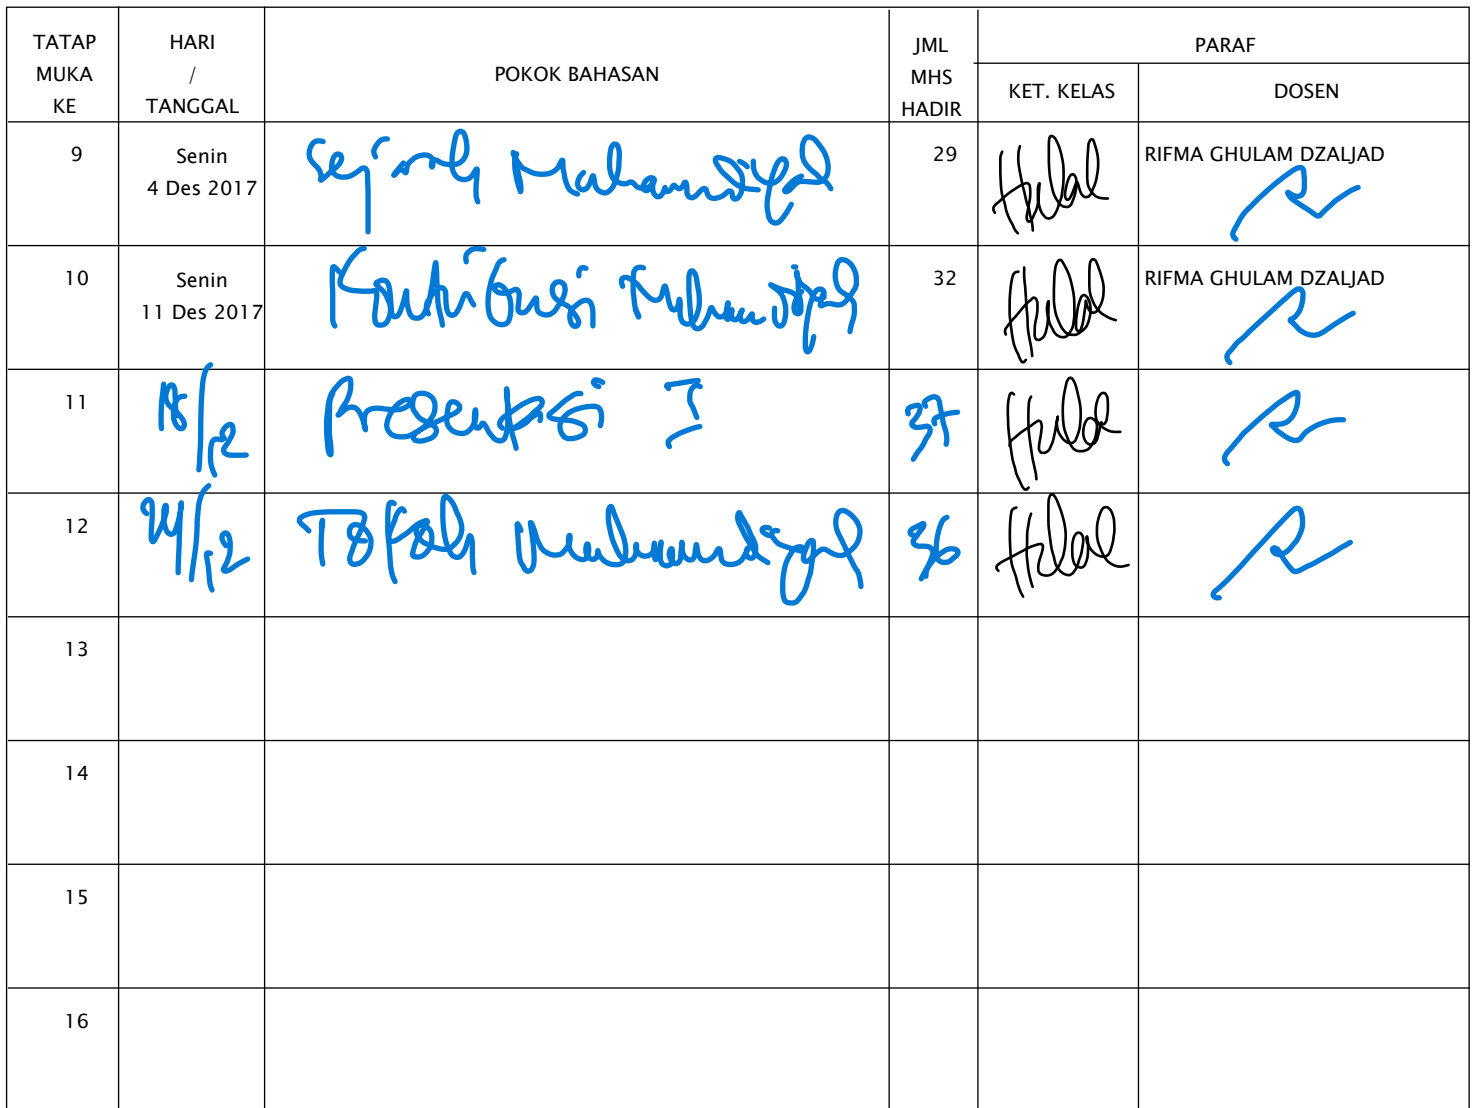 TATAP MUKA KE
HARI / TANGGAL
POKOK BAHASAN
JML MHS HADIR
PARAF
KET. KELAS
DOSEN
9
Senin
4 Des 2017
Sejarah Muhammadiyah
29
Hilal
RIFMA GHULAM DZALJAD
10
Senin
11 Des 2017
Kontribusi Muhammadiyah
32
Hilal
RIFMA GHULAM DZALJAD
11
18/12
Presentasi I
37
Hilal
12
24/12
Tokoh Muhammadiyah
36
Hilal
13
14
15
16